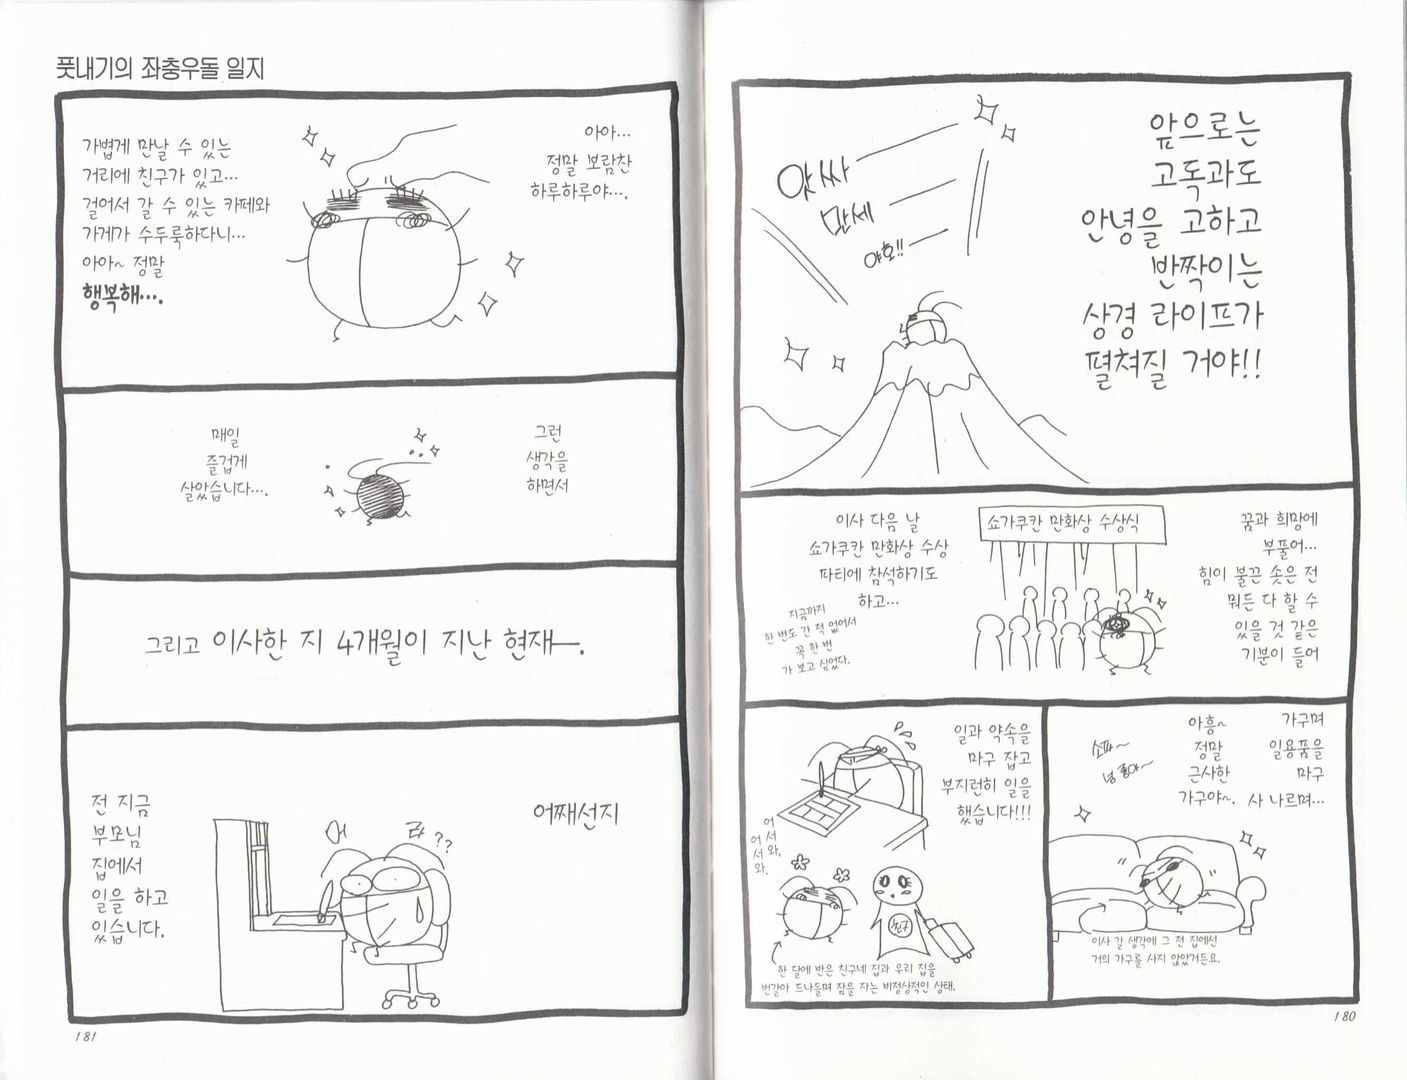 앞으로는
고독과도
안녕을 고하고
반짝이는
상경 라이프가
펼쳐질 거야!!
앗싸
만세
야호!!
꿈과 희망에
부풀어…
힘이 불끈 솟은 전
뭐든 다 할 수
있을 것 같은
기분이 들어
쇼가쿠칸 만화상 수상식
이사 다음 날
쇼가쿠칸 만화상 수상
파티에 참석하기도
하고…
지금까지
한 번도 간 적 없어서
꼭 한 번
가 보고 싶었다.
가구며
일용품을
마구
사 나르며…
아흥~
정말
근사한
가구야~.
소파~
넘 좋아~
이사 갈 생각에 그 전 집에서
거의 가구를 사지 않았거든요.
일과 약속을
마구 잡고
부지런히 일을
했습니다!!!
어서 와.
어서 와.
친구
한 달에 반은 친구네 집과 우리 집을
번갈아 드나들며 잠을 자는 비정상적인 상태.
180
풋내기의 좌충우돌 일지
아아…
정말 보람찬
하루하루야….
가볍게 만날 수 있는
거리에 친구가 있고…
걸어서 갈 수 있는 카페와
가게가 수두룩하다니…
아아~ 정말
행복해….
그런
생각을
하면서
매일
즐겁게
살았습니다….
그리고 이사한 지 4개월이 지난 현재―.
어째선지
전 지금
부모님
집에서
일을 하고
있습니다.
어
라
??
181